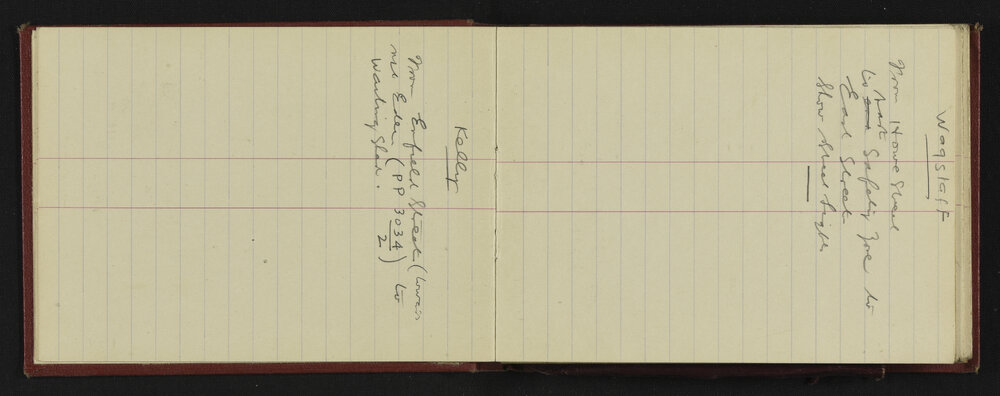 Wagstaff
From Howe Street
to last Safety Zone to
East Street
Show Street Lights
Kelly
From Enfield Street (Lower
no Eden (PP 3034/2) to
Waiting Shed.